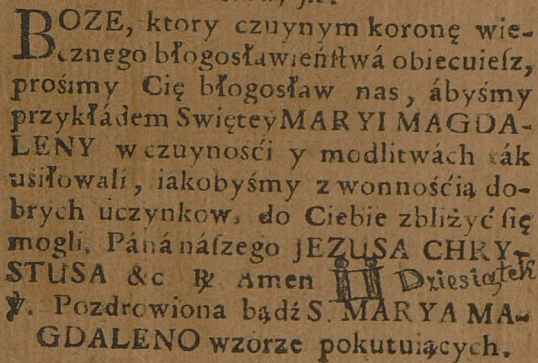 BOZE, ktory czuynym koronę wie-
cznego błogosławieńſtwá obiecuieſz,
prośimy Cię błogosław nas, ábyśmy
przykłádem Swiętey MARYI MAGDA-
LENY w czuynosći y modlitwách ták
usiłowali, iakobyśmy z wonnośćią do-
brych uczynkow, do Ciebie zbliżyć ſię
mogli, Páná náſzego JEZUSA CHRY-
STUSA &c ℟ Amen Dziesiątek
℣. Pozdrowiona bądź S. MARYA MA-
GDALENO wzorze pokutuiących.